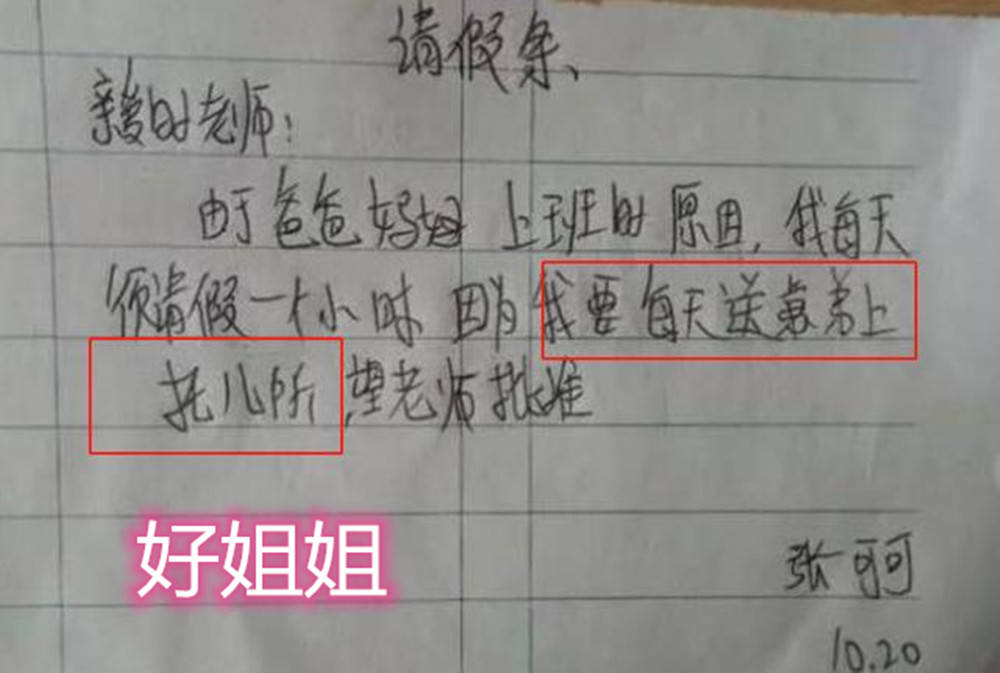 请假条
亲爱的老师:
由于爸爸妈妈上班的原因,我每天
须请假一个小时 因为我要每天送弟弟上
托儿所,望老师批准
好姐姐
张可可
10.20